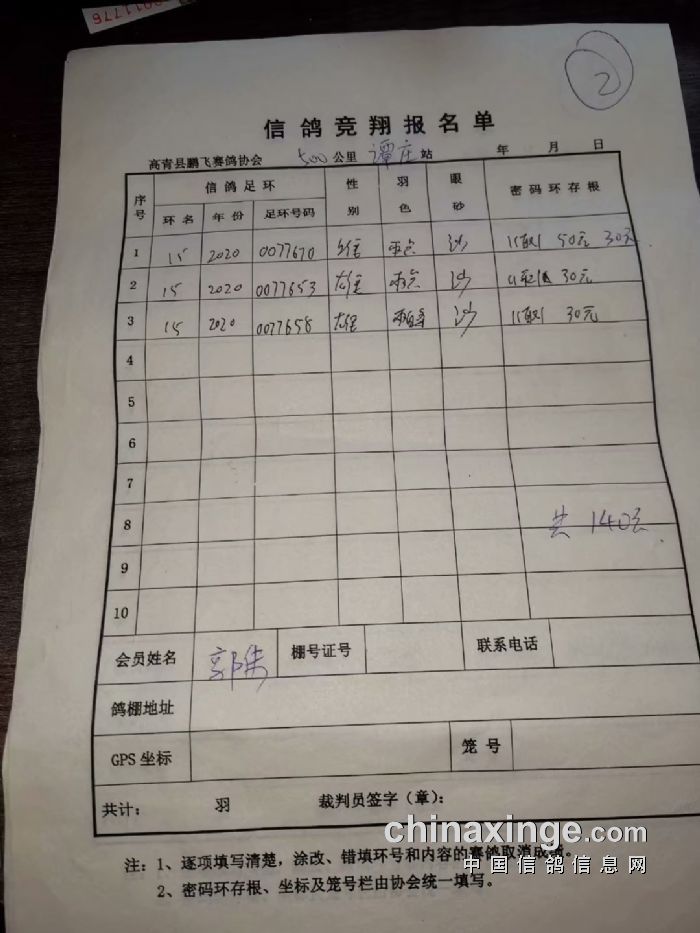 2
信鸽竞翔报名单
高青县鹏飞赛鸽协会 500公里 谭庄站 年 月 日
序号 信鸽足环 性别 羽色 眼砂 密码环存根
环名 年份 足环号码
1 15 2020 0077670 沙 50元 30元
2 15 2020 0077653 沙 30元
3 15 2020 0077658 沙 30元
4
5
6
7
8 共 140元
9
10
会员姓名 郭伟 棚号证号 联系电话
鸽棚地址
GPS坐标 笼号
共计: 羽 裁判员签字(章):
注:1、逐项填写清楚,涂改、错填环号和内容的赛鸽取消成绩。
2、密码环存根、坐标及笼号栏由协会统一填写。
chinaxinge.com
中国信鸽信息网